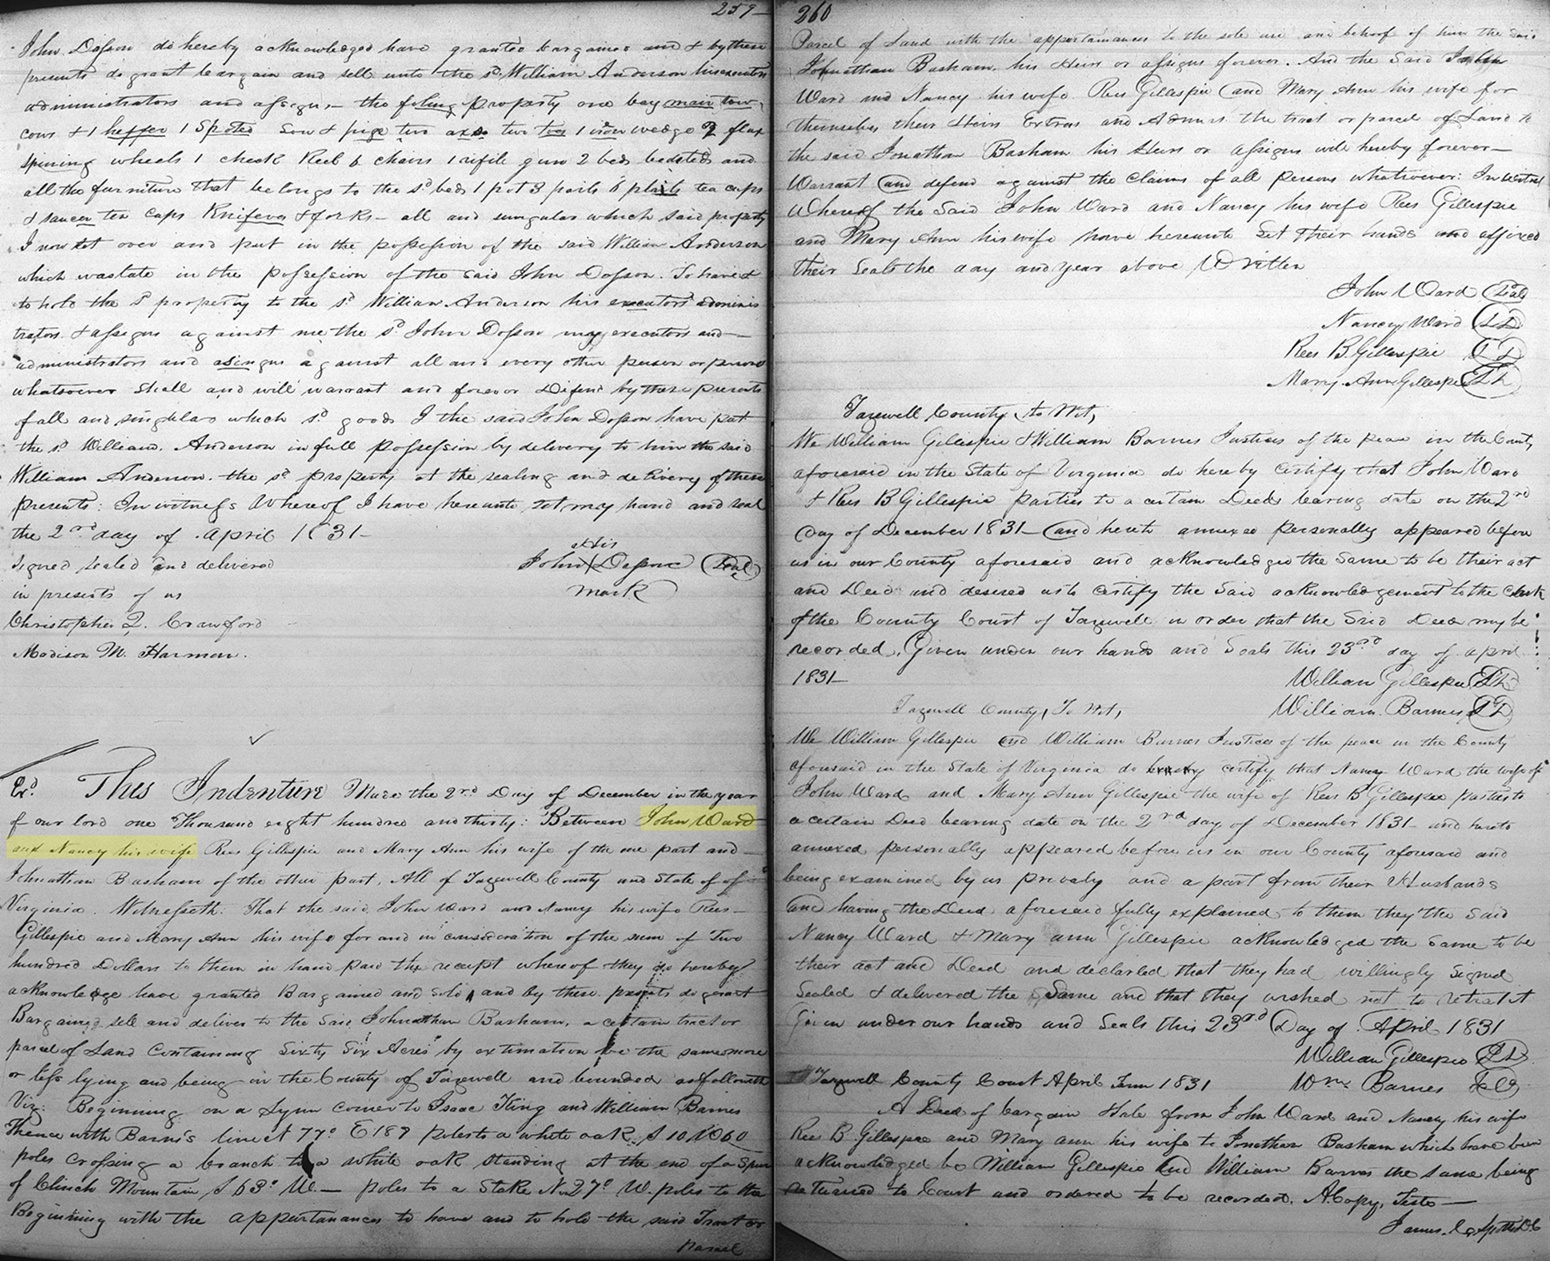 259
John Dosson do hereby acknowledged have granted bargained and & by these
presents do grant bargain and sell unto the sd. William Anderson his executors
administrators and assigns the property one bay
cow & 1 heffer 1 Spoted Sow & pigs two axes two 1 iron wedge 2 flax
spining wheels 1 check Reel 6 chairs 1 rifle gun 2 beds bedsteds and
all the furniture that belongs to the sd beds 1 pot 3 pails 6 plaits tea cups
& saucer ten cups Knifevs & forks - all and singular which said property
I now set over and put in the possession of the said William Anderson
which was late in the possession of the said John Dosson. To have &
to hold the sd property to the sd. William Anderson his executors adminis
trators & assigns against me the sd John Dosson my executors and
administrators and asings against all and every other person or persons
whatsoever Shall and will warrant and forever Defend by these presents
of all and singular which sd. goods I the said John Dosson have put
the sd. William Anderson in full possession by delivery to him the said
William Anderson the sd property at the sealing and delivery of these
presents: In witness Whereof I have hereunto set my hand and seal
the 2nd day of April 1831-
Signed sealed and delivered his
in presents of us John X Dosson Seal
Christopher Q. Crawford mark
Madison M. Harman.
Exd. This Indenture Made the 2nd Day of December in the year
of our lord one Thousand eight hundred and thirty: Between John Ward
and Nancy his wife Rees Gillespie and Mary Ann his wife of the one part and
Johnathan Basham of the other part, All of Tazewell County and State of
Virginia. Witnesseth: That the said John Ward and Nancy his wife Rees
Gillespie and Mary Ann his wife for and in consideration of the sum of Two
hundred Dollars to them in hand paid the receipt whereof they do hereby
acknowledge have granted Bargained and Sold, and by these presents do grant
Bargained sell and deliver to the Said Johnathan Basham, a certain tract or
parcel of Land containing Sixty Six Acres by extimation be the same more
or less lying and being in the County of Tazewell and bounded as followeth
Viz. Beginning on a Lynn corner to Isaac King and William Barnes
Thence with Barns's line 77° E 187 poles to a white oak S 10 W 60
poles crossing a branch to a white oak standing at the end of a Spur
of Clinch Mountain S 63° W - poles to a Stake N 27° W. poles to the
Beginning with the appertanances to have and to hold the said Tract or
Parcel
260
Parcel of Land with the appertainances to the sole use and behoof of him the said
Johnathan Basham, his Heirs or assigns forever. And the Said John
Ward and Nancy his wife Rees Gillespie and Mary Ann his wife for
themselves their Heirs Extrus and Admrs the tract or parcel of Land to
the said Jonathan Basham his Heirs or assigns will hereby forever-
Warrant and defend against the claims of all Persons whatsoever: In witness
Whereof the Said John Ward and Nancy his wife Rees Gillespie
and Mary Ann his wife have hereunto Set Their hands and affixed
their Seals the day and year above Written
John Ward Seal
Nancy Ward
Rees B. Gillespie
Mary Ann Gillespie
Tazewell County to Wit,
We William Gillespie & William Barnes Justices of the peace in the County
aforesaid in the State of Virginia do hereby certify that John Ward
& Rees B Gillespie parties to a certain Deed bearing date on the 2nd
Day of December 1831- and hereto annexed personally appeared before
us in our County aforesaid and acknowledged the Same to be their act
and Deed and desired us to certify the Said acknowledgement to the clerk
of the County Court of Tazewell in order that the Said Deed may be
recorded. Given under our hands and Seals this 23rd day of april
1831- William Gillespie
Tazewell County, To Wit, William Barnes
We William Gillespie and William Barnes Justices of the peace in the County
aforesaid in the State of Virginia do hereby certify that Nancy Ward the wife of
John Ward and Mary Ann Gillespie the wife of Rees B Gillespie parties to
a certain Deed bearing date on the 2nd day of December 1831- and hereto
annexed personally appeared before us in our County aforesaid and
being examined by us privaly and a part from their Husbands
and having the Deed aforesaid fully explained to them they the Said
Nancy Ward & Mary ann Gillespie acknowledged the Same to be
their act and Deed and declared that they had willingly Signed
Sealed & delivered the Same and that they wished not to retract it
Given under our hands and Seals this 23rd Day of April 1831
William Gillespie
Tazewell County Court April Term 1831 Wm. Barnes
A Deed of bargain & sale from John Ward and Nancy his wife
Rees B Gillespie and Mary ann his wife to Jonathan Basham which have been
acknowledged be William Gillespie and William Barnes the same being
returned to Court and ordered to be recorded. A Copy, Teste
James